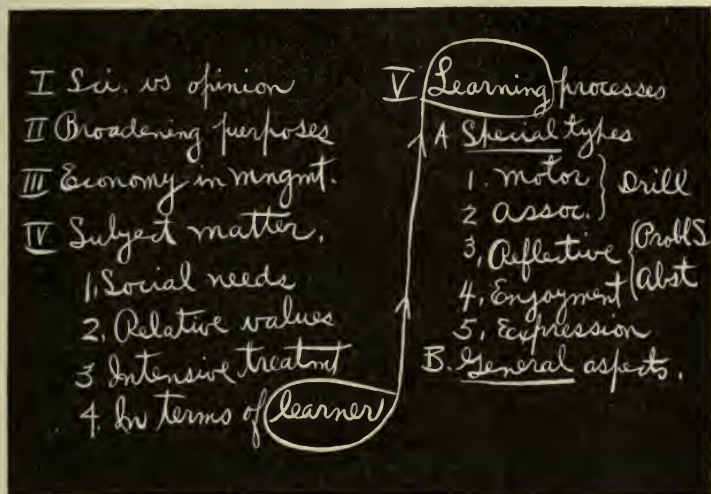 I Sci. vs opinion
II Broadening purposes
III Economy in mngmt.
IV Subject matter.
1. Social needs
2. Relative values
3 Intensive treatmt
4. In terms of learner
V Learning processes
A Special types
1. Motor } Drill
2 Assoc. }
3. Reflective { Probl S
4. Enjoyment { Abst
5. Expression
B. General aspects.